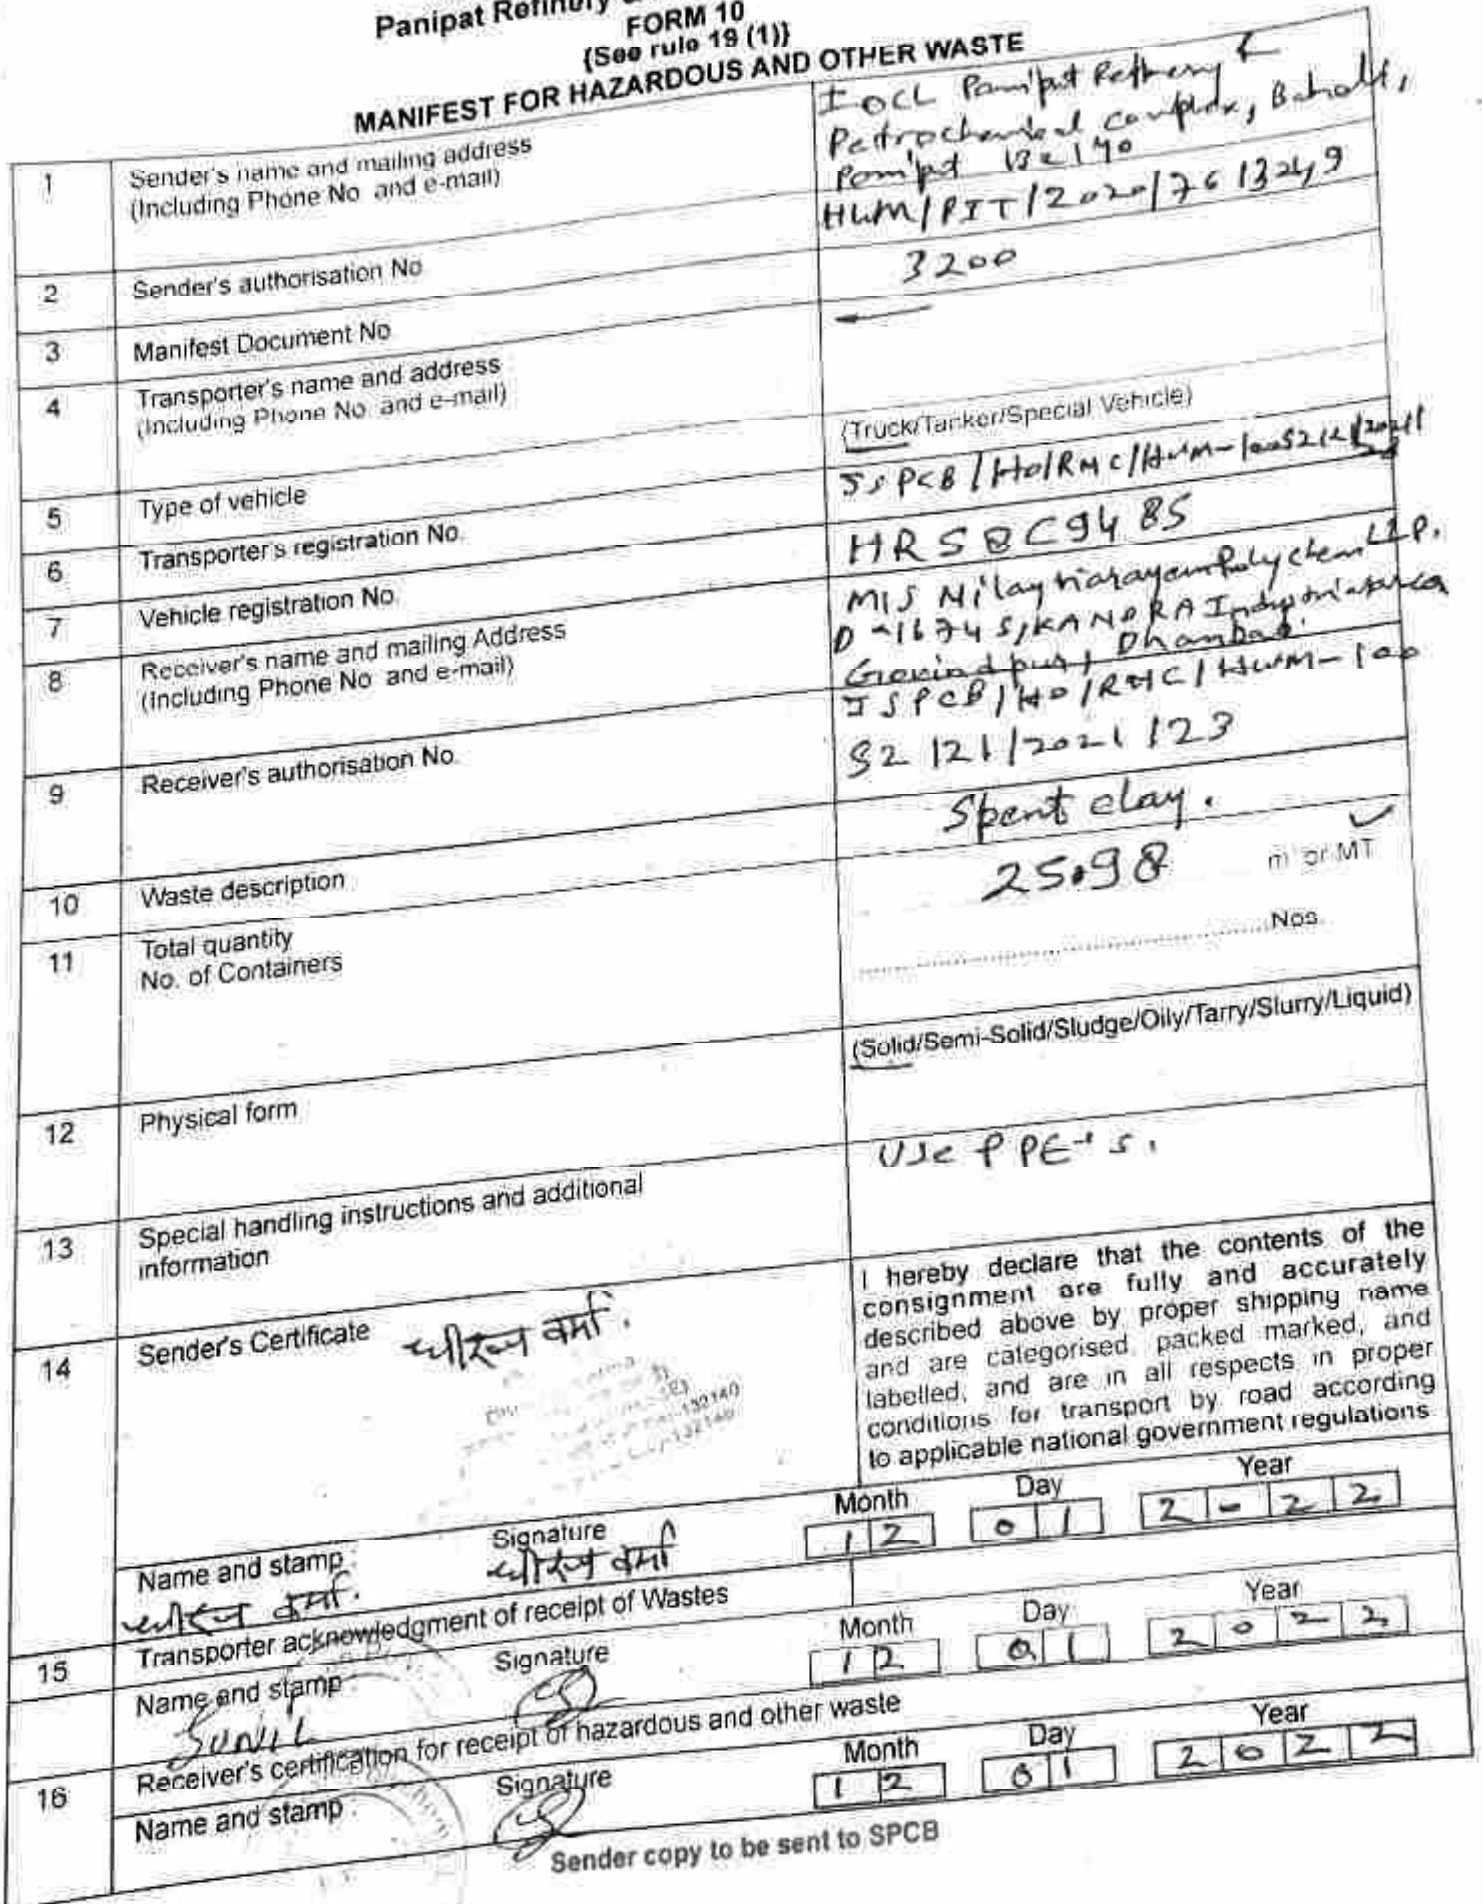 Panipat Refinery
FORM 10
{See rule 19 (1)}
MANIFEST FOR HAZARDOUS AND OTHER WASTE
1 Sender's name and mailing address
(Including Phone No and e-mail)
IOCL Panipat Refinery &
Petrochemical complex, Baholi,
Panipat 132140
2 Sender's authorisation No
HWM/PIT/2020/7613249
3 Manifest Document No
3200
4 Transporter's name and address
(Including Phone No. and e-mail)
5 Type of vehicle
(Truck/Tanker/Special Vehicle)
6 Transporter's registration No.
JSPCB/HO/RMC/HWM-100
7 Vehicle registration No.
HR58C9485
8 Receiver's name and mailing Address
(Including Phone No and e-mail)
M/S Nilay Narayan Polychem LLP.
KANDRA Industrial Area
Govindpur, Dhanbad.
9 Receiver's authorisation No.
JSPCB/HO/RMC/HWM-100
52/21/2021/23
10 Waste description
Spent clay.
11 Total quantity
25.98 m³ or MT
No. of Containers
Nos.
12 Physical form
(Solid/Semi-Solid/Sludge/Oily/Tarry/Slurry/Liquid)
13 Special handling instructions and additional
information
Use PPE's.
14 Sender's Certificate
132140
I hereby declare that the contents of the
consignment are fully and accurately
described above by proper shipping name
and are categorised, packed marked, and
labelled, and are in all respects in proper
conditions for transport by road according
to applicable national government regulations
Name and stamp : Signature Month Day Year
वर्मा वर्मा 12 01 2-22
15 Transporter acknowledgment of receipt of Wastes
Name and stamp : Signature Month Day Year
SUNIL 12 01 2022
16 Receiver's certification for receipt of hazardous and other waste
Name and stamp : Signature Month Day Year
12 01 2022
Sender copy to be sent to SPCB